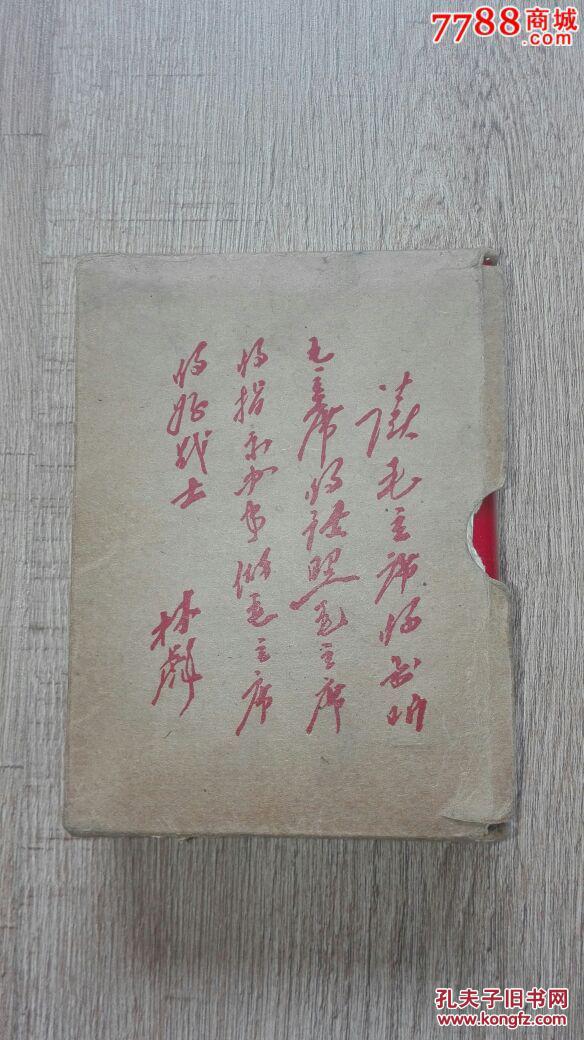 7788商城
.com
读毛主席的书听
毛主席的话照毛主席
的指示办事做毛主席
的好战士
林彪
孔夫子旧书网
www.kongfz.com